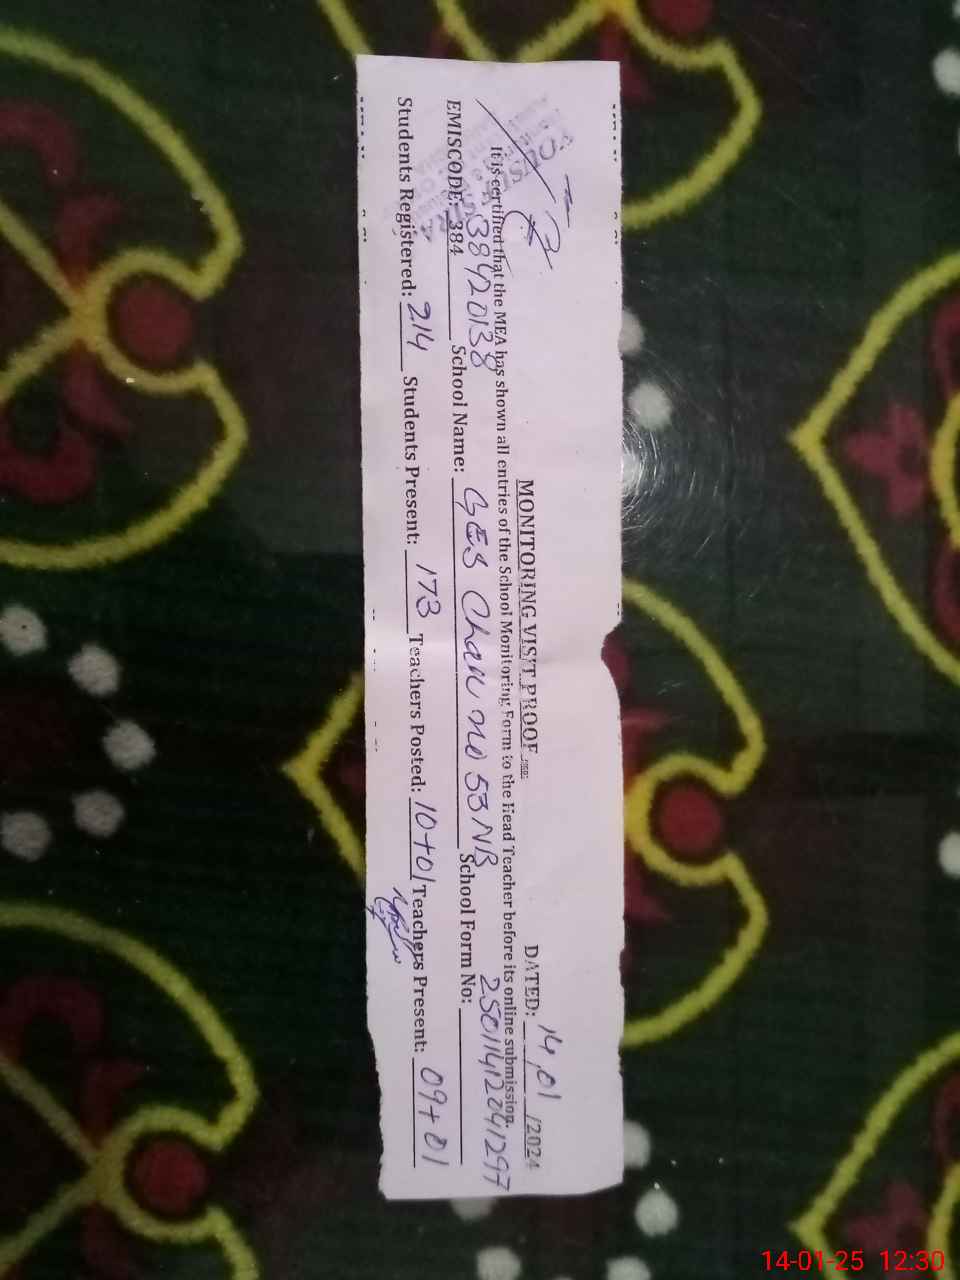 MONITORING VISIT PROOF
DATED: 14/01/2024
It is certified that the MEA has shown all entries of the School Monitoring Form to the Head Teacher before its online submission.
EMISCODE: 384 38420138 School Name: GES Chak no 53 NB School Form No: 250114122041297
Students Registered: 214 Students Present: 173 Teachers Posted: 10+01 Teachers Present: 09+01
14-01-25 12:30